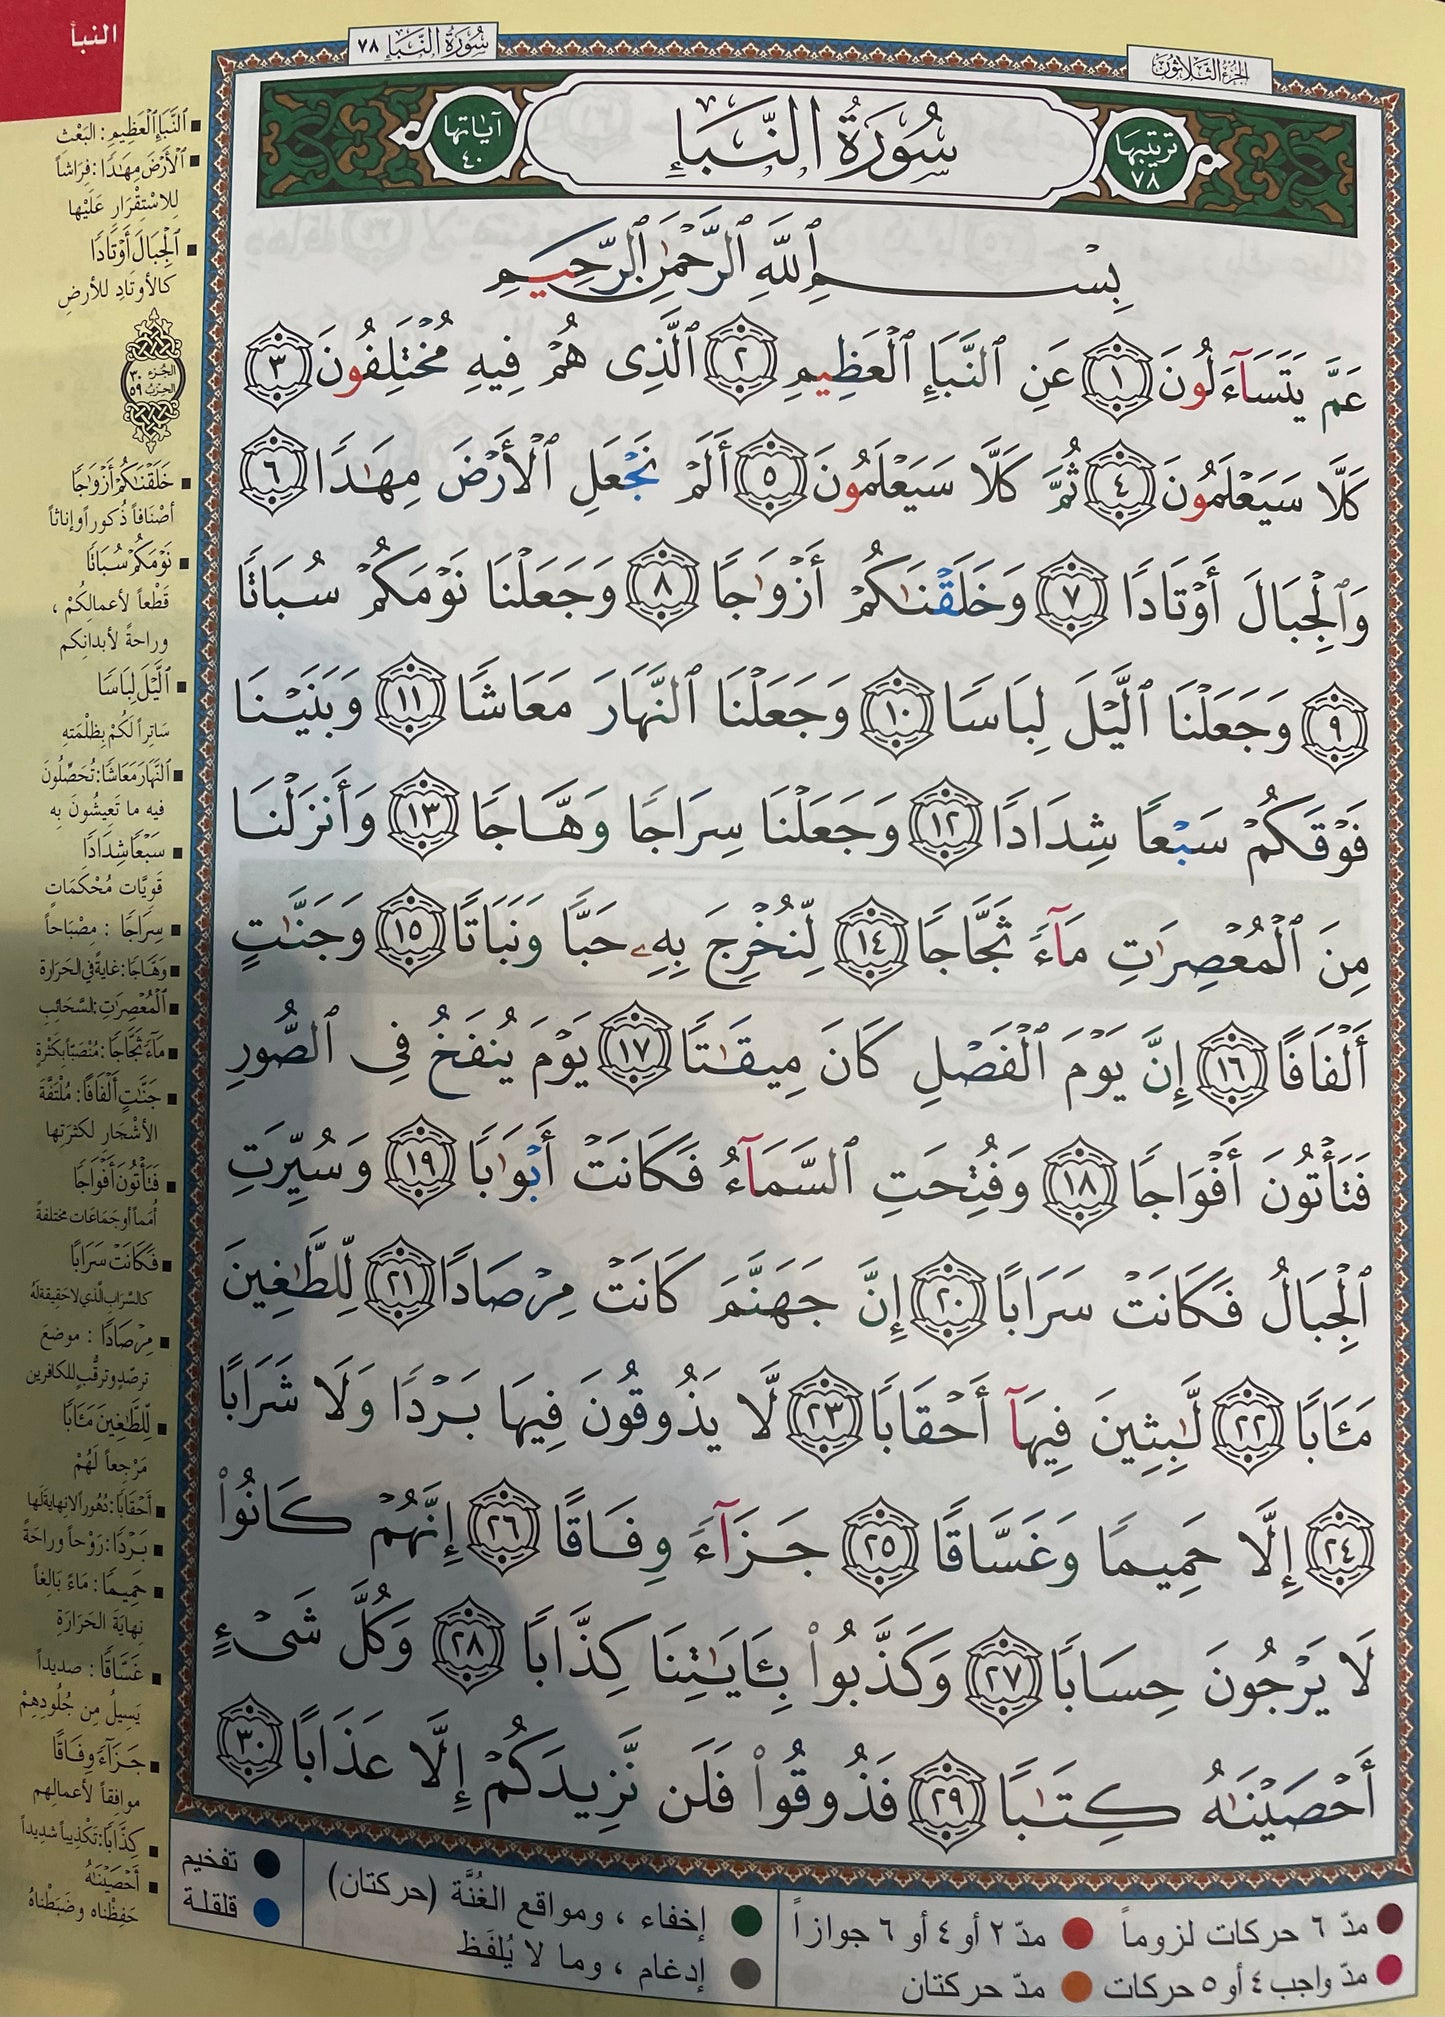 النبأ
سُورَةُ النَّبَإِ ٧٨
الجُزءُ الثَّلَاثُونَ
ترتيبها ٧٨
سُورَةُ النَّبَإِ
آياتها ٤٠
بِسْمِ ٱللَّهِ ٱلرَّحْمَٰنِ ٱلرَّحِيمِ
عَمَّ يَتَسَآءَلُونَ ١ عَنِ ٱلنَّبَإِ ٱلْعَظِيمِ ٢ ٱلَّذِى هُمْ فِيهِ مُخْتَلِفُونَ ٣
كَلَّا سَيَعْلَمُونَ ٤ ثُمَّ كَلَّا سَيَعْلَمُونَ ٥ أَلَمْ نَجْعَلِ ٱلْأَرْضَ مِهَٰدًا ٦
وَٱلْجِبَالَ أَوْتَادًا ٧ وَخَلَقْنَٰكُمْ أَزْوَٰجًا ٨ وَجَعَلْنَا نَوْمَكُمْ سُبَاتًا
٩ وَجَعَلْنَا ٱلَّيْلَ لِبَاسًا ١٠ وَجَعَلْنَا ٱلنَّهَارَ مَعَاشًا ١١ وَبَنَيْنَا
فَوْقَكُمْ سَبْعًا شِدَادًا ١٢ وَجَعَلْنَا سِرَاجًا وَهَّاجًا ١٣ وَأَنزَلْنَا
مِنَ ٱلْمُعْصِرَٰتِ مَآءً ثَجَّاجًا ١٤ لِّنُخْرِجَ بِهِۦ حَبًّا وَنَبَاتًا ١٥ وَجَنَّٰتٍ
أَلْفَافًا ١٦ إِنَّ يَوْمَ ٱلْفَصْلِ كَانَ مِيقَٰتًا ١٧ يَوْمَ يُنفَخُ فِى ٱلصُّورِ
فَتَأْتُونَ أَفْوَاجًا ١٨ وَفُتِحَتِ ٱلسَّمَآءُ فَكَانَتْ أَبْوَٰبًا ١٩ وَسُيِّرَتِ
ٱلْجِبَالُ فَكَانَتْ سَرَابًا ٢٠ إِنَّ جَهَنَّمَ كَانَتْ مِرْصَادًا ٢١ لِّلطَّٰغِينَ
مَـَٔابًا ٢٢ لَّٰبِثِينَ فِيهَآ أَحْقَابًا ٢٣ لَّا يَذُوقُونَ فِيهَا بَرْدًا وَلَا شَرَابًا
٢٤ إِلَّا حَمِيمًا وَغَسَّاقًا ٢٥ جَزَآءً وِفَاقًا ٢٦ إِنَّهُمْ كَانُوا۟
لَا يَرْجُونَ حِسَابًا ٢٧ وَكَذَّبُوا۟ بِـَٔايَٰتِنَا كِذَّابًا ٢٨ وَكُلَّ شَىْءٍ
أَحْصَيْنَٰهُ كِتَٰبًا ٢٩ فَذُوقُوا۟ فَلَن نَّزِيدَكُمْ إِلَّا عَذَابًا ٣٠
■ ٱلنَّبَإِ ٱلْعَظِيمِ : البَعْث
■ ٱلْأَرْضَ مِهَٰدًا : فِرَاشاً
لِلاسْتِقْرَارِ عَلَيْها
■ ٱلْجِبَالَ أَوْتَادًا
كالأوتَادِ للأرضِ
الجزء ٣٠
الحزب ٥٩
■ خَلَقْنَٰكُمْ أَزْوَٰجًا
أصْنَافاً ذُكوراً وإناثاً
■ نَوْمَكُمْ سُبَاتًا
قَطْعاً لأعمالِكُمْ ،
وراحةً لأبدانِكم
■ ٱلَّيْلَ لِبَاسًا
سَاتِراً لَكُمْ بِظُلْمَتِهِ
■ ٱلنَّهَارَ مَعَاشًا : تُحَصِّلُونَ
فيه ما تَعِيشُونَ بِه
■ سَبْعًا شِدَادًا
قَوِيَّات مُحْكَمَاتٍ
■ سِرَاجًا : مِصْبَاحاً
■ وَهَّاجًا : غايةً في الحَرَارة
■ ٱلْمُعْصِرَٰتِ : السَّحَائِبِ
■ مَآءً ثَجَّاجًا : مُنْصَبّاً بِكَثْرةٍ
■ جَنَّٰتٍ أَلْفَافًا : مُلْتَفَّةَ
الأشْجَارِ لكثرَتِها
■ فَتَأْتُونَ أَفْوَاجًا
أُمَماً أو جَمَاعَات مختلفةً
■ فَكَانَتْ سَرَابًا
كالسَّرَابِ الَّذي لا حَقِيقة لَهُ
■ مِرْصَادًا : موضعَ
ترصّدٍ وترقّبٍ للكافرين
■ لِّلطَّٰغِينَ مَـَٔابًا
مَرْجِعاً لَهُمْ
■ أَحْقَابًا : دُهُوراً لا نِهَايَةَ لَها
■ بَرْدًا : رَوْحاً وراحَةً
■ حَمِيمًا : مَاءً بَالِغاً
نِهايَةَ الحَرَارَةِ
■ غَسَّاقًا : صديداً
يَسِيلُ مِن جُلُودِهِمْ
■ جَزَآءً وِفَاقًا
موافِقاً لأعمالِهم
■ كِذَّابًا : تَكْذِيباً شديداً
■ أَحْصَيْنَٰهُ
حَفِظْناه وضَبَطْناهُ
مدّ ٦ حركات لزوماً ● مدّ ٢ أو ٤ أو ٦ جوازاً
مدّ واجب ٤ أو ٥ حركات ● مدّ حركتان
إخفاء ، ومواقع الغُنَّة (حركتان)
إدغام ، وما لا يُلفَظ
تفخيم
قلقلة